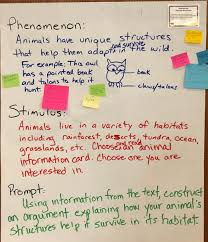 Phenomenon:
Animals have unique structures
that help them adapt and survive in the wild.
For example: This owl
has a pointed beak
and talons to help it
hunt.
beak
claws/talons
Stimulus:
Animals live in a variety of habitats
including rainforest, deserts, tundra, ocean,
grasslands, etc. Choose and read an animal
information card. Choose one you are
interested in.
Prompt:
Using information from the text, construct
an argument explaining how your animal's
structures help it survive in its habitat.